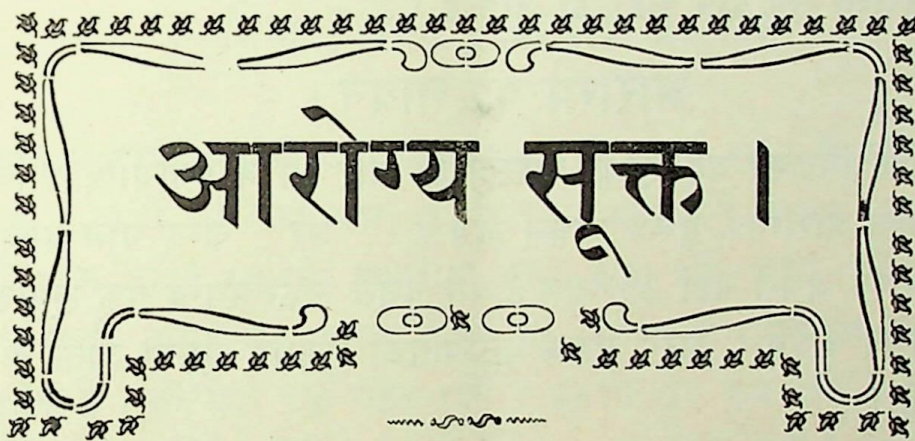 आरोग्य सूक्त ।